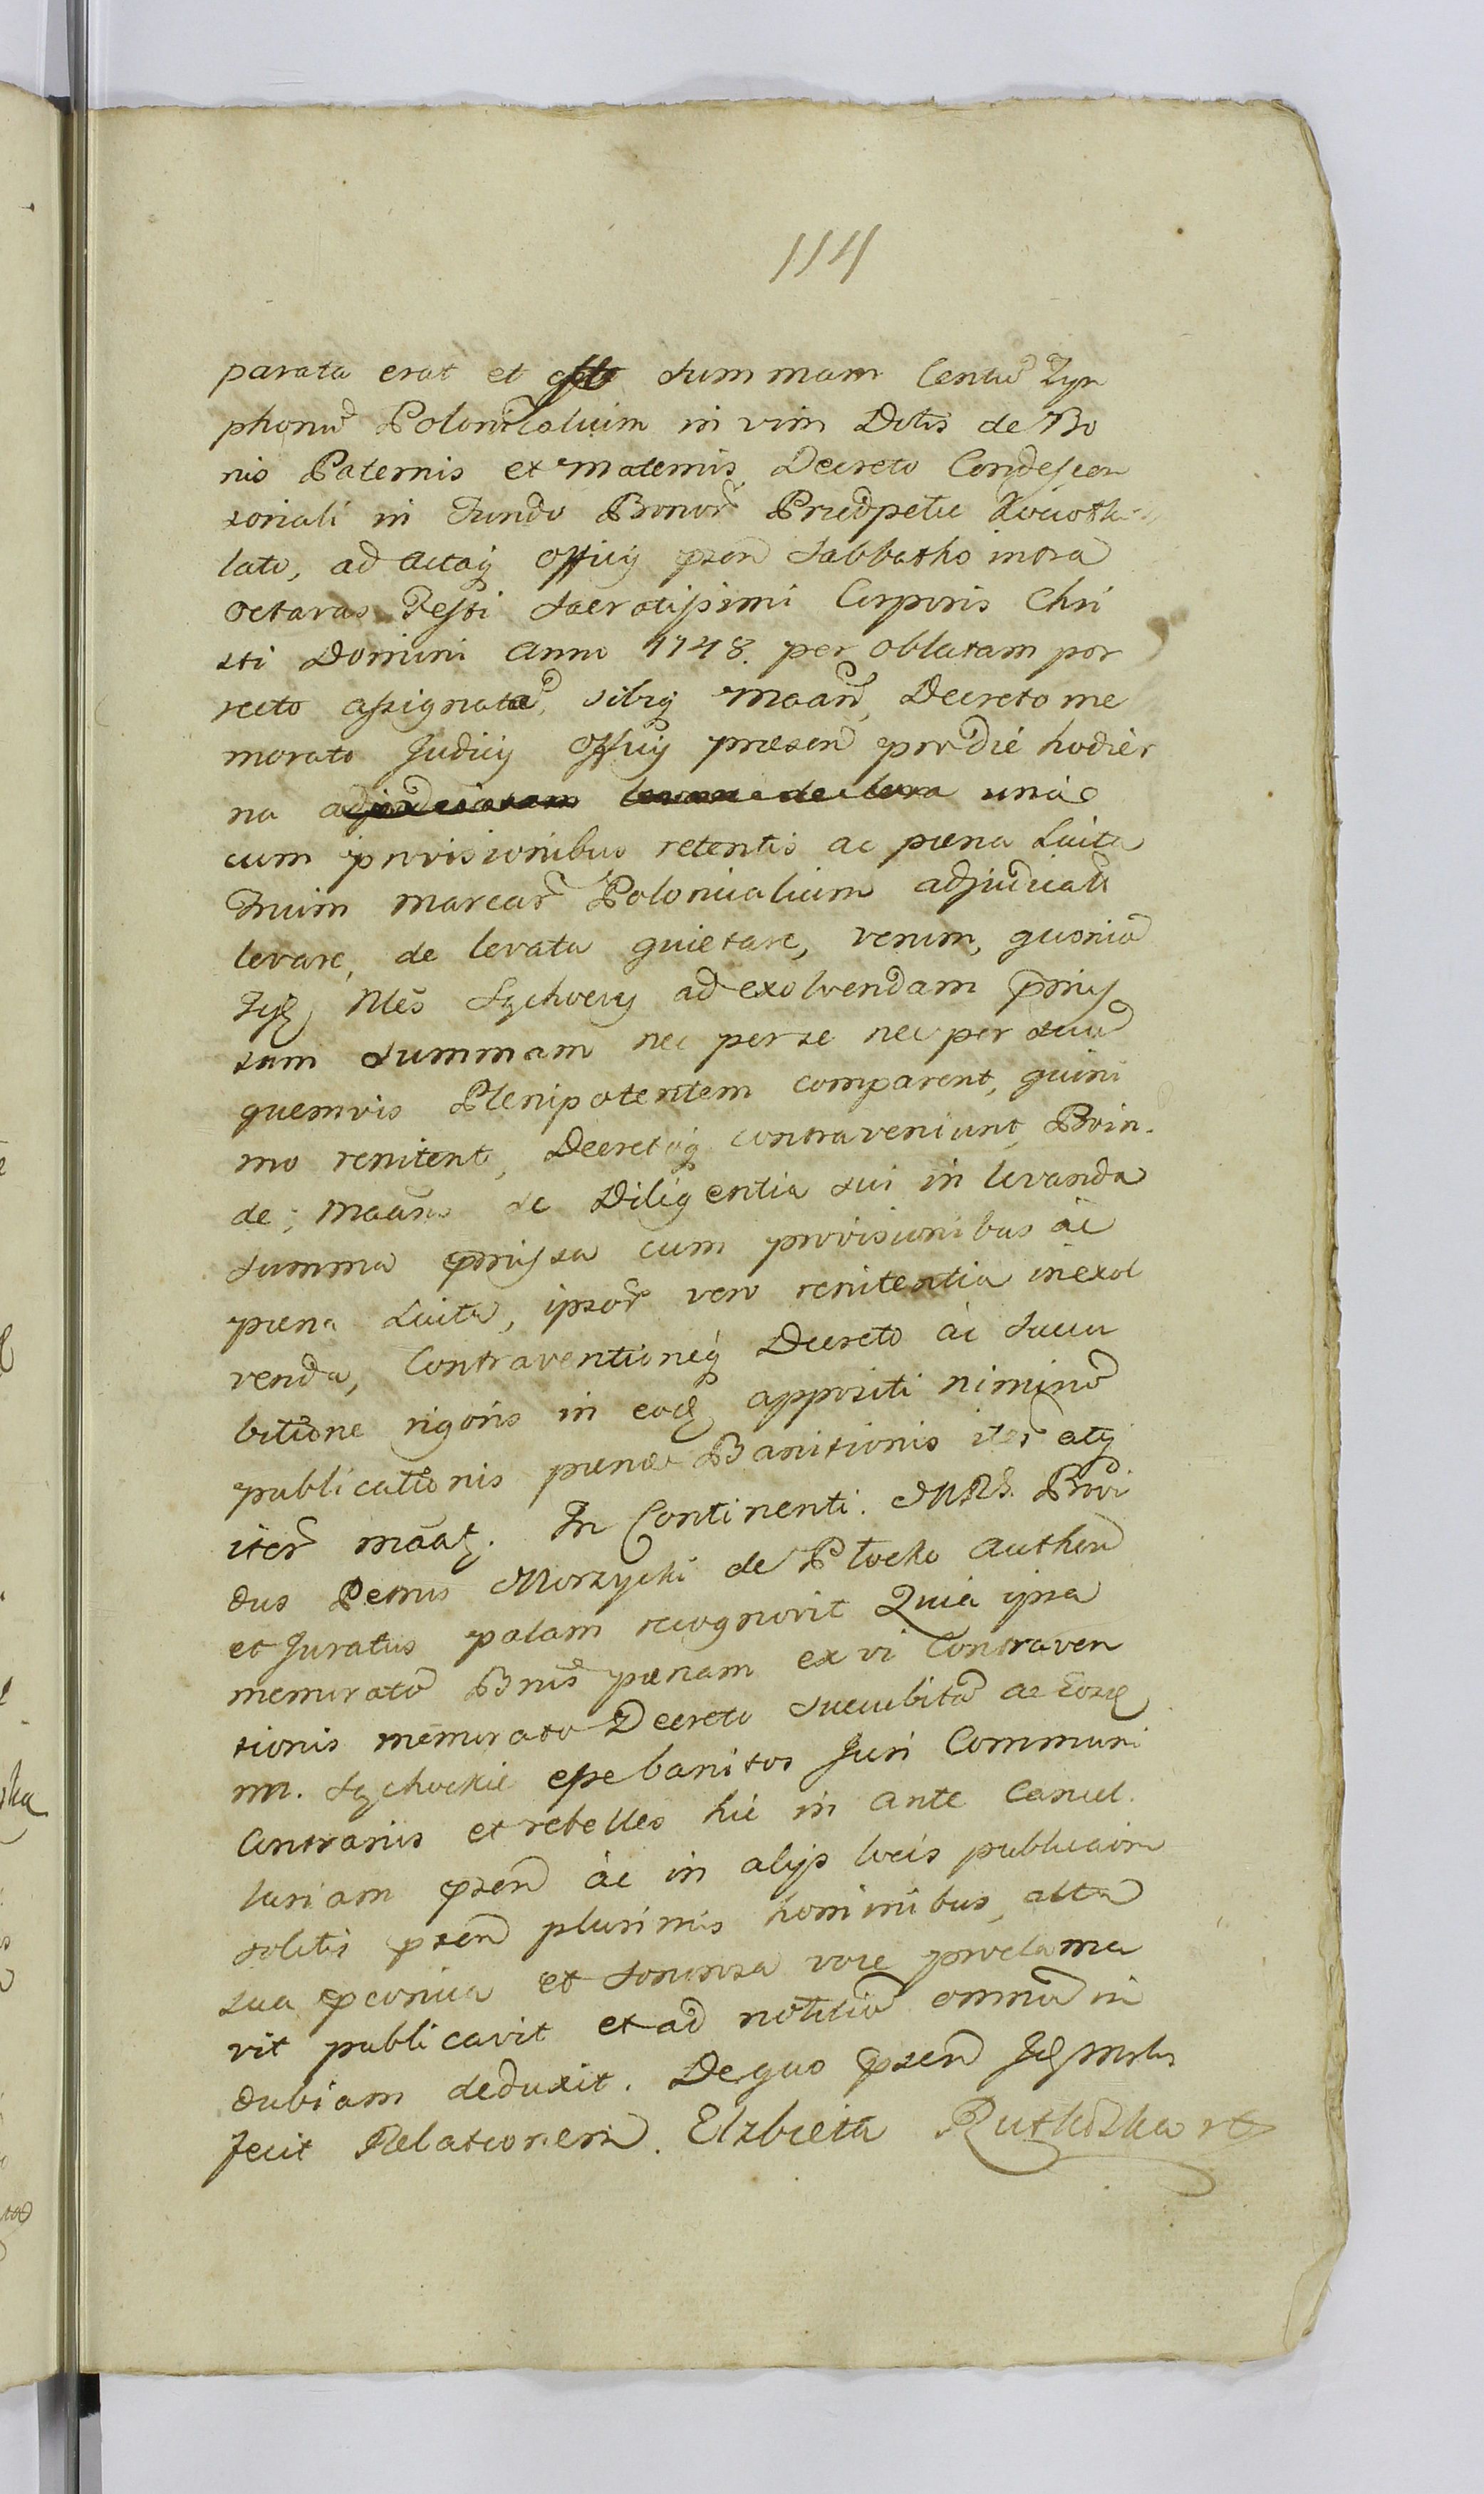 114
parata erat et est summam Centũ Zyn
phonũ Polonicalium in vim Dotis de Bo
nis Paternis et Maternis Decreto Condescen
soriali in Fundo Bonoř Prædpetæ
lato, ad actaq̃ Officij psen Sabbatho intra
octavas Festi Sacratissimi Corporis Chri
sti Domini anno 1748. per oblatam por
recto assignatã, sibiq̃ Maanđ, Decreto me
morato Judicij Officij præsen pro die hodier
na una
cum provisionibus retentis ac pæna Luita
Trium marcař Polonicalium adjudicatã
levare, de levata quietare, verum, quoniã
Iidẽ Nles Sychoccy ad exolvendam pmis
sam summam nec per se nec per suũ
quemvis Plenipotentem comparent, quini
mo renitent, Decretoq̃ contraveniunt, Proin
de, Maãns de Diligentia sui in levanda
summa pmissa cum provisionibus ac
pæna Luita, ipsoř vero renitentia in exol
venda, Contraventioneq̃ Decreto ac succu
bitione rigoris in eodẽ appositi nimirũ
publicationis pænæ Banitionis iteř atq̃
iteř maãt. In Continenti. MRS. Provi
dus Petrus Morzycki de Płocko Authen
et Juratus palam recognovit Quia ipse
memoratã Bnis pænam ex vi Contraven
tionis memorato Decreto succubitã ac Eosdẽ
NN. Sychockie esse banitos Juri Communi
Contrarios et rebelles hic in ante Cancel
lariam psen ac in alijs locis publicaõni
solitis psen plurimis hominibus, alta
sua pconica et sonorosa voce proclama
vit publicavit et ad notitiã omniũ in
dubiam deduxit. De quo psen Idẽ Mrlis
fecit Relationem. Elzbieta Rutkoska